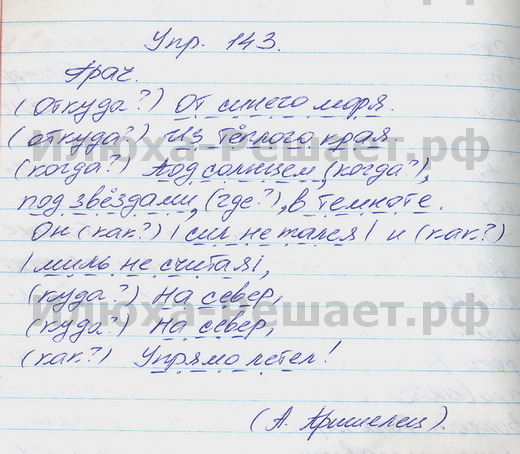 Упр. 143.
Грач.
(откуда?) От синего моря.
(откуда?) Из тёплого края.
(когда?) Под солнцем, (когда?),
под звёздами, (где?), в темноте.
Он (как?) | сил не тая | и (как?)
| миль не считая |,
(куда?) На север,
(куда?) На север,
(как?) Упрямо летел!
(А. Пришелец).
Илюха-Решает.рф
Илюха-Решает.рф